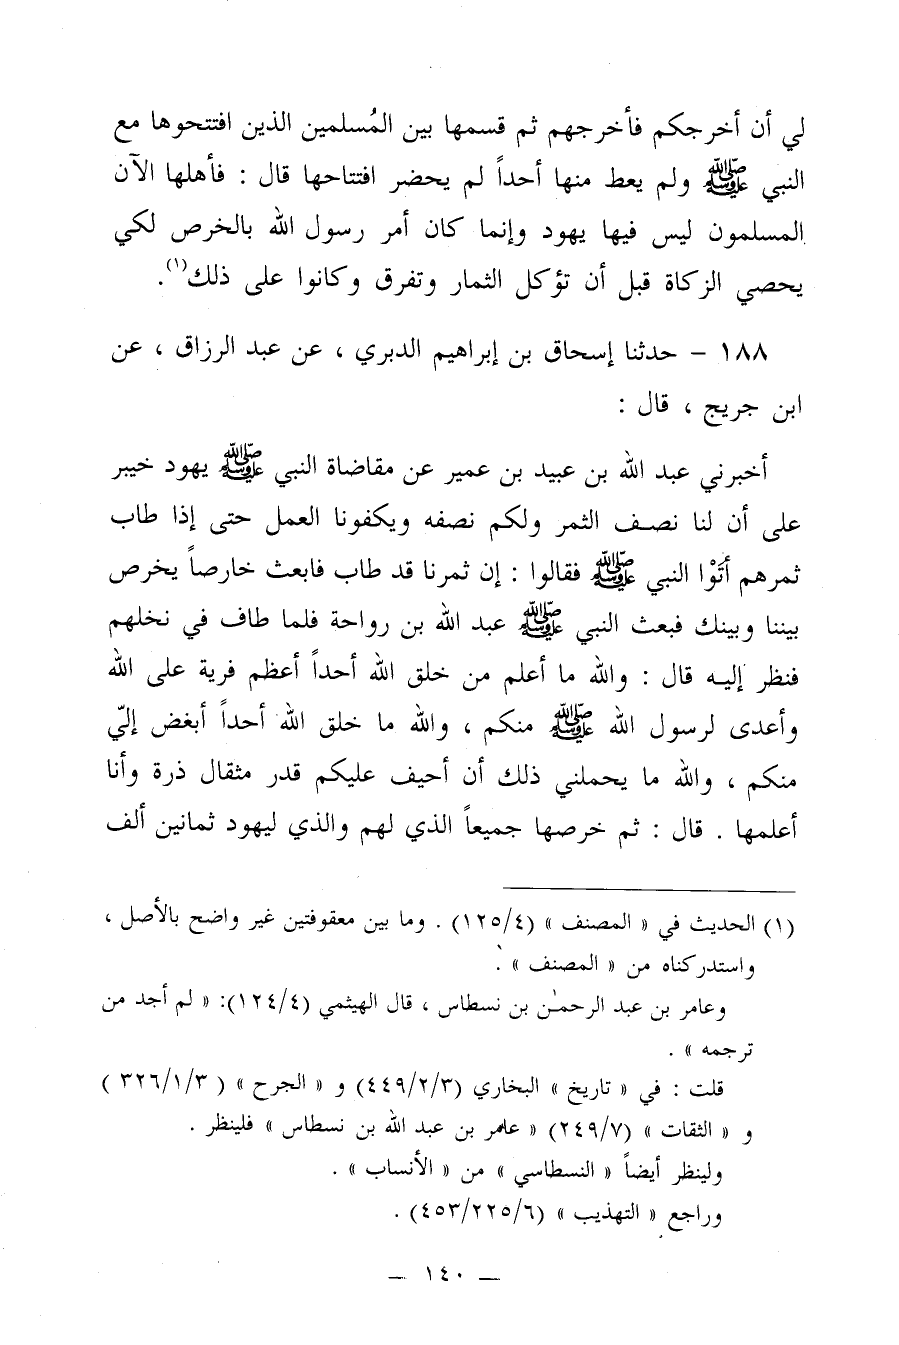 لي أن أخرجكم فأخرجهم ثم قسمها بين المُسلمين الذين افتتحوها مع
النبي ﷺ ولم يعط منها أحداً لم يحضر افتتاحها قال : فأهلها الآن
المسلمون ليس فيها يهود وإنما كان أمر رسول الله بالخرص لكي
يحصي الزكاة قبل أن تؤكل الثمار وتفرق وكانوا على ذلك(١).
١٨٨ - حدثنا إسحاق بن إبراهيم الدبري ، عن عبد الرزاق ، عن
ابن جريج ، قال :
أخبرني عبد الله بن عبيد بن عمير عن مقاضاة النبي ﷺ يهود خيبر
على أن لنا نصف الثمر ولكم نصفه ويكفونا العمل حتى إذا طاب
ثمرهم أَتَوْا النبي ﷺ فقالوا : إن ثمرنا قد طاب فابعث خارصاً يخرص
بيننا وبينك فبعث النبي ﷺ عبد الله بن رواحة فلما طاف في نخلهم
فنظر إليه قال : والله ما أعلم من خلق الله أحداً أعظم فرية على الله
وأعدى لرسول الله ﷺ منكم ، والله ما خلق الله أحداً أبغض إليّ
منكم ، والله ما يحملني ذلك أن أحيف عليكم قدر مثقال ذرة وأنا
أعلمها . قال : ثم خرصها جميعاً الذي لهم والذي ليهود ثمانين ألف
(١) الحديث في « المصنف » (١٢٥/٤) . وما بين معقوفتين غير واضح بالأصل ،
واستدركناه من « المصنف » .
وعامر بن عبد الرحمٰن بن نسطاس ، قال الهيثمي (١٢٤/٤): « لم أجد من
ترجمه » .
قلت : في « تاريخ » البخاري (٤٤٩/٢/٣) و « الجرح » ( ٣٢٦/١/٣ )
و « الثقات » (٢٤٩/٧) « عامر بن عبد الله بن نسطاس » فلينظر .
ولينظر أيضاً « النسطاسي » من « الأنساب » .
وراجع « التهذيب » (٤٥٣/٢٢٥/٦) .
— ١٤٠ —